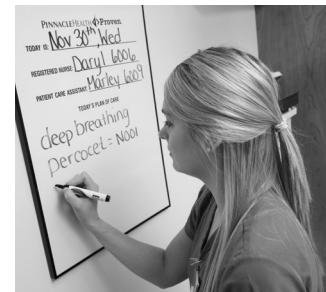 PINNACLEHEALTH Proven
TODAY IS: Nov 30th, Wed
REGISTERED NURSE: Daryl 6006
PATIENT CARE ASSISTANT: Marley 6009
TODAY'S PLAN OF CARE
deep breathing
percocet = Noon